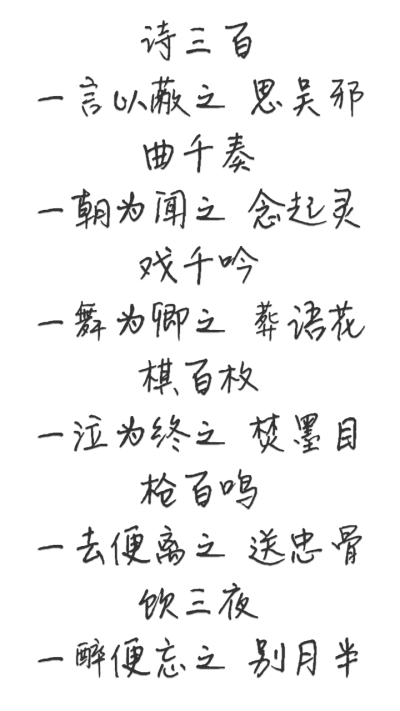 诗三百
一言以蔽之 思吴邪
曲千奏
一朝为闻之 念起灵
戏千吟
一舞为卿之 葬语花
棋百枚
一泣为终之 焚墨目
枪百鸣
一去便离之 送忠骨
饮三夜
一醉便忘之 别月半